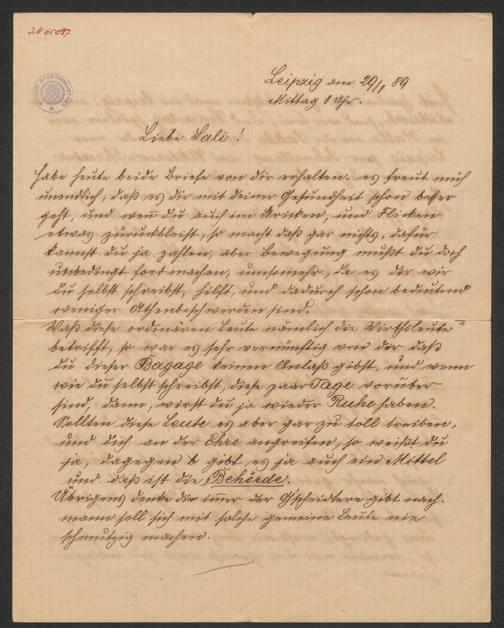 Leipzig am 29/1 89
Mittag 1 Uhr.
Liebe Sali!
Habe heute beide Briefe von dir erhalten. es freut mich
unendlich, daß es dir mit deiner Gesundheit schon beßer
geht, und wen̄ du auch im Stricken, und Flicken
etwas zurückbleibst, so macht daß gar nichts, dafür
kannst du ja zahlen, aber Bewegung mußt du doch
unbedingt fort machen, umsomehr, da es dir wie
du selbst schreibst, hilft, und dadurch schon bedeutend
weniger Athenbeschwerden sind.
Waß diese ordinären Leute nämlich die Wirthsleute
betrifft, so war es sehr vernünftig von dir daß
du dieser Bagage keinen Anlaß gibst, und wenn
wie du selbst schreibst, diese paar Tage vorüber
sind, dann, wirst du ja wieder Ruhe haben.
Sollten diese Leute es aber gar zu toll treiben,
und dich an der Ehre angreifen, so weißt du
ja, dagegen gibt es ja auch ein Mittel
und daß ist die Behörde.
Übrigens denke dir im̄er der G'scheidtere gibt nach.
mann soll sich mit solche gemeine Leute nie
schmutzig machen.